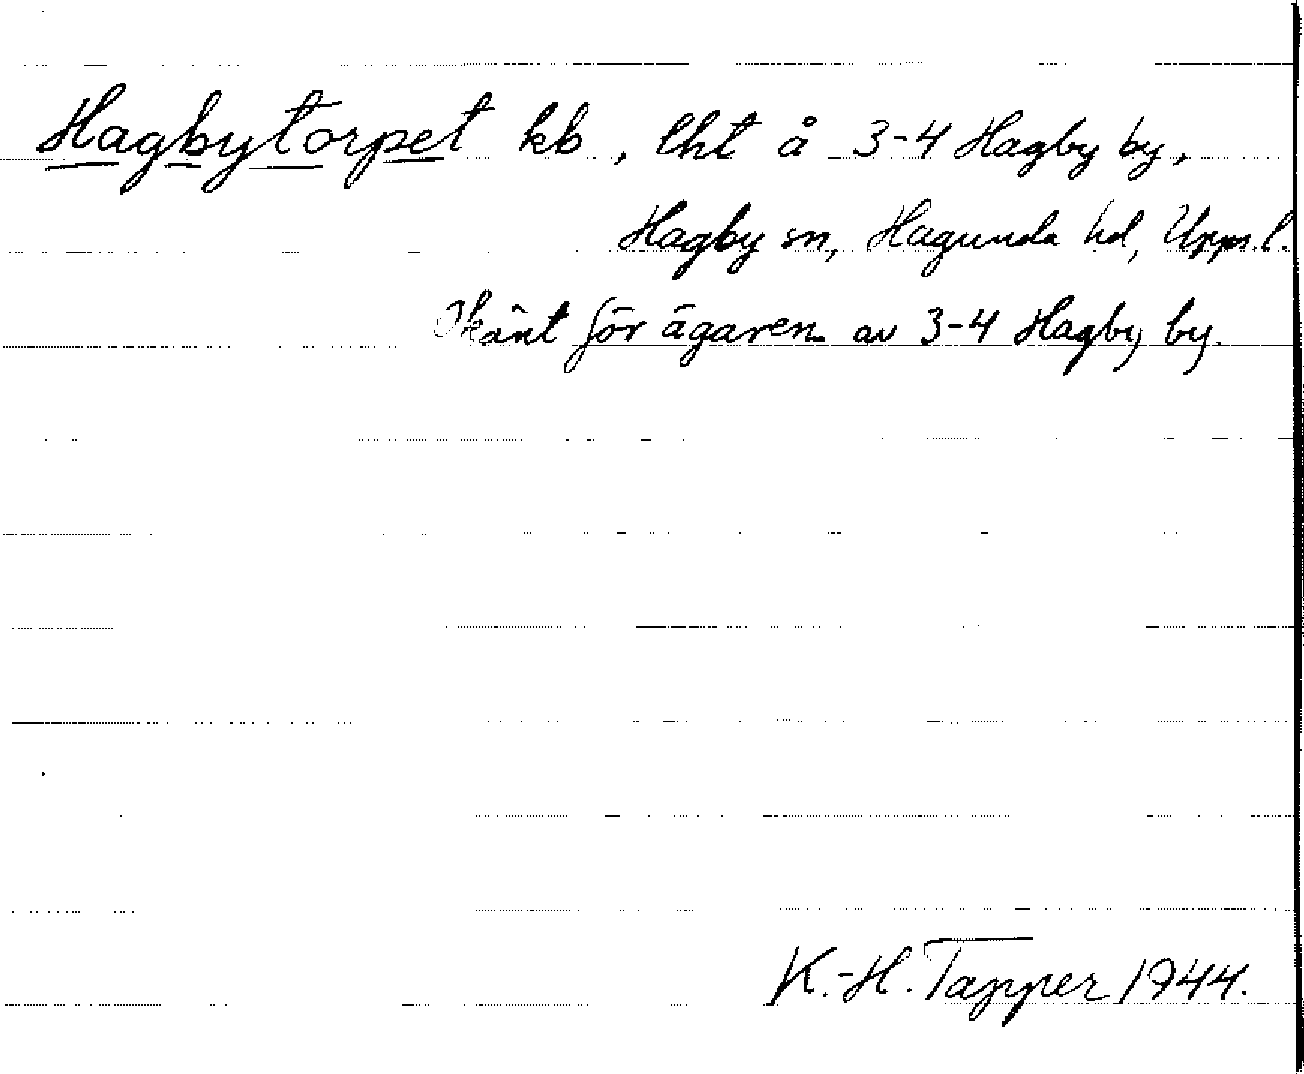 Hagbytorpet kb, lht å 3-4 Hagby by,
Hagby sn, Hagunda hd, Uppl.
Okänt för ägaren av 3-4 Hagby by.
K.-H. Tapper 1944.